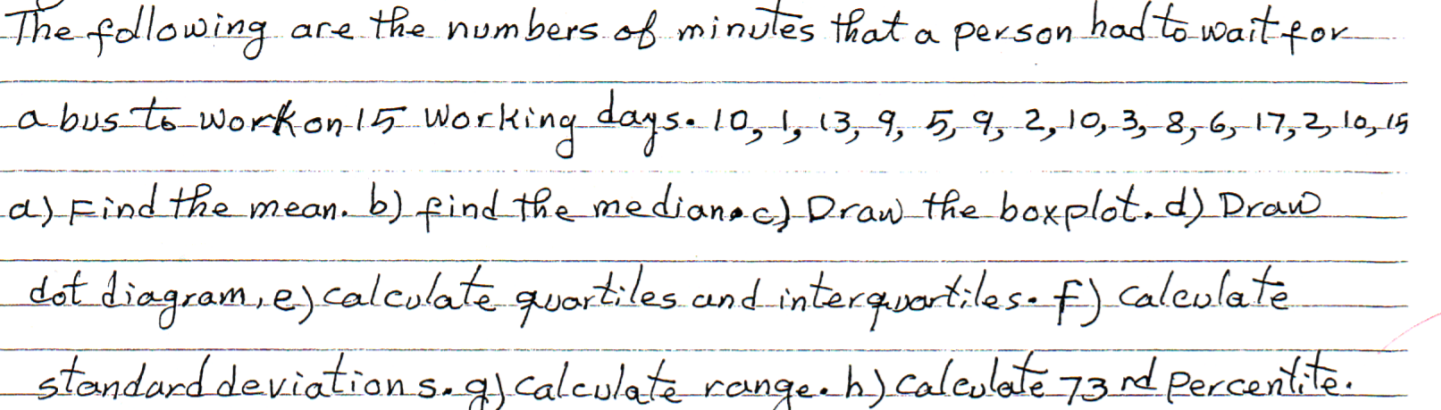 The following are the numbers of minutes that a person had to wait for
a bus to work on 15 working days. 10, 1, 13, 9, 5, 9, 2, 10, 3, 8, 6, 17, 2, 10, 15
a) Find the mean. b) find the median. c) Draw the boxplot. d) Draw
dot diagram, e) calculate quartiles and interquartiles. f) Calculate
standard deviations. g) calculate range. h) Calculate 73 rd Percentite.